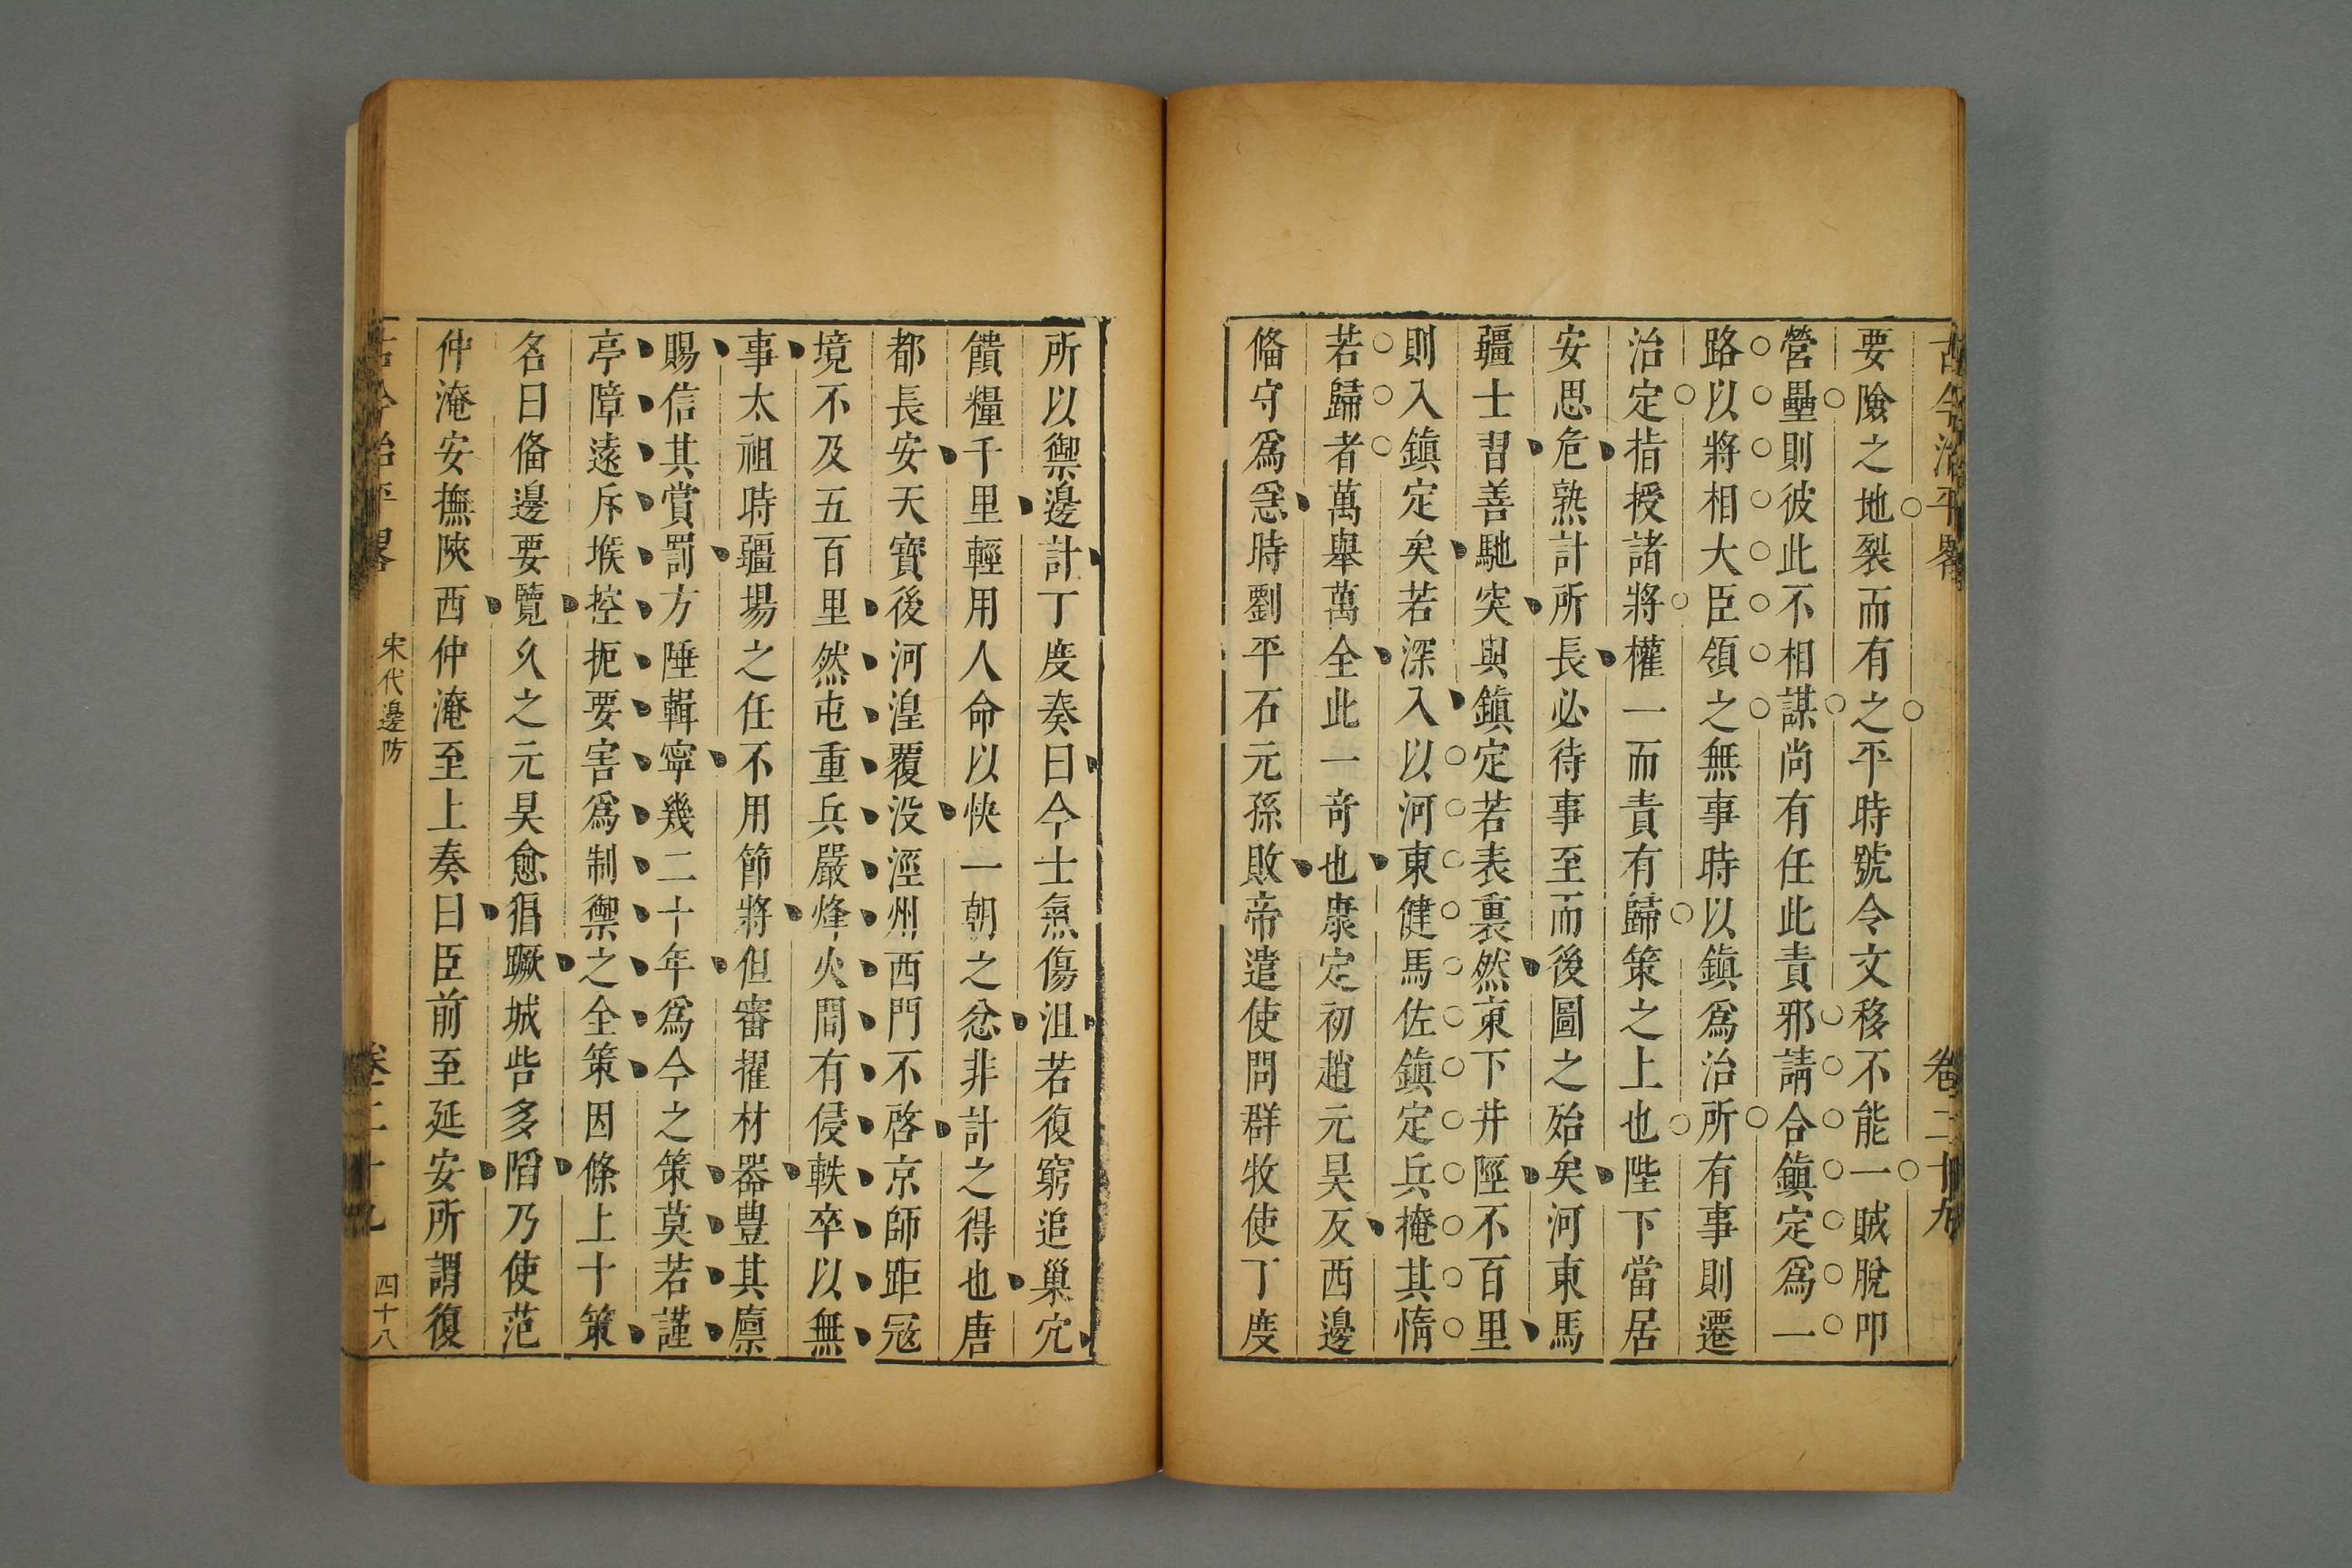 古今治平畧 卷二十九
要險之地裂而有之平時號令文移不能一賊脫叩
營壘則彼此不相謀尚有任此責邪請合鎮定爲一
路以將相大臣領之無事時以鎮爲治所有事則遷
治定指授諸將權一而責有歸策之上也陛下當居
安思危熟計所長必待事至而後圖之殆矣河東馬
疆士習善馳突與鎮定若表裏然東下井陘不百里
則入鎮定矣若深入以河東健馬佐鎮定兵掩其惰
若歸者萬舉萬全此一奇也康定初趙元昊反西邊
偹守爲急時劉平石元孫敗帝遣使問群牧使丁度
所以禦邊計丁度奏曰今士氣傷沮若復窮追巢穴
饋糧千里輕用人命以快一朝之忿非計之得也唐
都長安天寶後河湟覆没涇州西門不啓京師距寇
境不及五百里然屯重兵嚴烽火間有侵軼卒以無
事太祖時疆場之任不用節將但審擢材器豊其廪
賜信其賞罰方陲輯寧幾二十年爲今之策莫若謹
亭障遠斥堠控扼要害爲制禦之全策因條上十策
名曰偹邊要覽久之元昊愈猖蹶城砦多䧟乃使范
仲淹安撫陝西仲淹至上奏曰臣前至延安所謂復
古今治平畧 宋代邊防 卷二十九 四十八